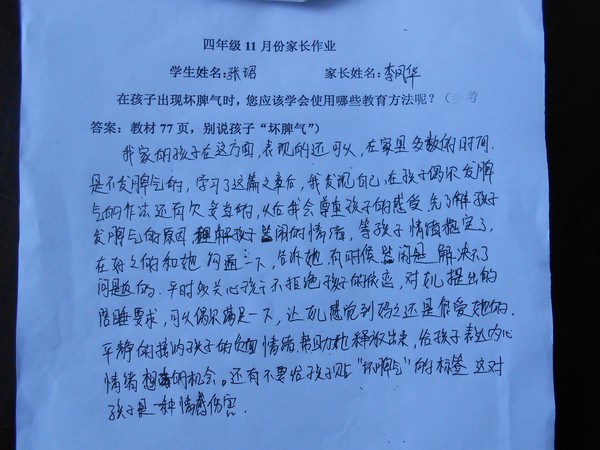 四年级11月份家长作业
学生姓名:张珺 家长姓名:李风华
在孩子出现坏脾气时，您应该学会使用哪些教育方法呢？（参考
答案：教材77页，别说孩子“坏脾气”）
我家的孩子在这方面，表现的还可以，在家里多数的时间
是不发脾气的，学习了这篇文章后，我发现自己，在孩子偶尔发脾
气的作法还有欠妥当的，以后我会尊重孩子的感受，先了解孩子
发脾气的原因，理解孩子苦闹的情绪，等孩子情绪稳定了，
在好好的和她沟通一下，告诉她，有时候哭闹是解决不了
问题的。平时多关心孩子不拒绝孩子的依恋，对女儿提出的
陪睡要求，可以偶尔满足一下，让女儿感觉到妈妈还是很爱她的。
平静的接纳孩子的负面情绪，帮助她释放出来，给孩子表达内心
情绪想的机会。还有不要给孩子贴“坏脾气”的标签 这对
孩子是一种情感伤害.